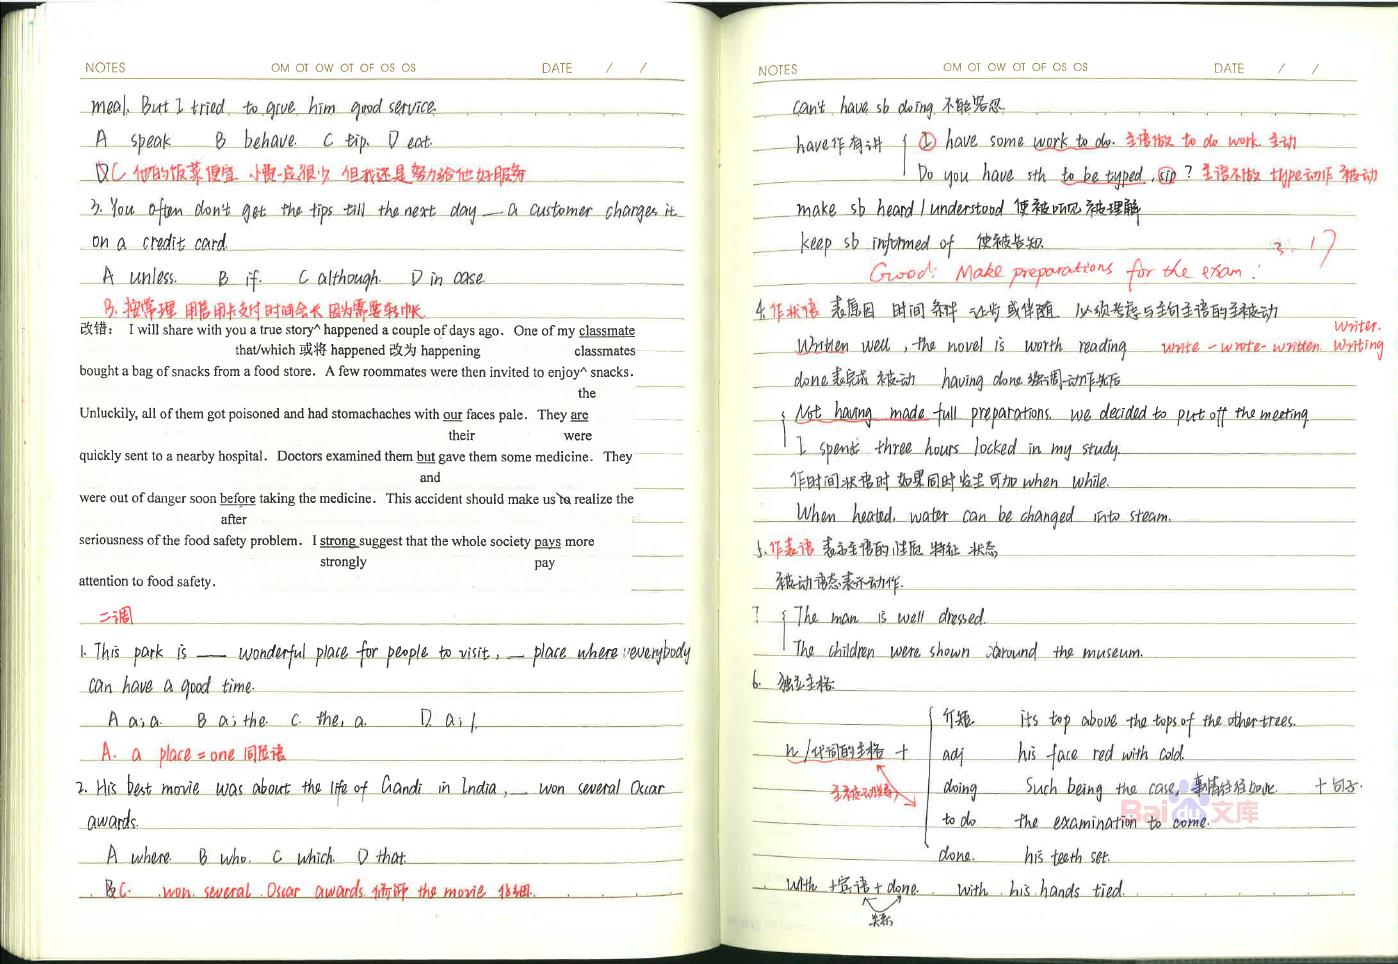 NOTES OM OT OW OT OF OS OS DATE / /
meal. But I tried to give him good service.
A speak B behave. C tip. D eat.
C 他的饭菜便宜 小费一应很少 但我还是努力给他好服务
3. You often don't get the tips till the next day __ a customer charges it
on a credit card.
A unless. B if. C although. D in case.
B. 按常理 用信用卡支付时间会长 因为需要转帐.
改错: I will share with you a true story^ happened a couple of days ago. One of my classmate
that/which 或将 happened 改为 happening classmates
bought a bag of snacks from a food store. A few roommates were then invited to enjoy^ snacks.
the
Unluckily, all of them got poisoned and had stomachaches with our faces pale. They are
their were
quickly sent to a nearby hospital. Doctors examined them but gave them some medicine. They
and
were out of danger soon before taking the medicine. This accident should make us to realize the
after
seriousness of the food safety problem. I strong suggest that the whole society pays more
strongly pay
attention to food safety.
二调
1. This park is __ wonderful place for people to visit, __ place where everybody
can have a good time.
A a; a. B a; the. C. the, a. D. a; /.
A. a place = one 同位语
2. His best movie was about the life of Gandi in India, __ won several Oscar
awards.
A where. B who. C which. D that.
C. won several Oscar awards 修饰 the movie
NOTES OM OT OW OT OF OS OS DATE / /
can't have sb doing 不能容忍.
have作有讲 ① have some work to do. 主语做 to do work. 主动
Do you have sth to be typed, sir? 主语不做 type动作 被动
make sb heard / understood 使被听见 被理解
keep sb informed of 使被告知.
3.17
Good! Make preparations for the exam!
4. 作状语 表原因 时间 条件 让步 或伴随 必须考虑与主句主语的主被动
writer.
Written well, the novel is worth reading write - wrote - written. writing
done表完成 被动 having done 强调动作先后
Not having made full preparations, we decided to put off the meeting.
I spent three hours locked in my study.
作时间状语时 如果同时发生 可加 when while.
When heated, water can be changed into steam.
5. 作表语 表示主语的性质 特征 状态
被动语态表示动作.
? The man is well dressed.
The children were shown around the museum.
6. 独立主格:
介短 its top above the tops of the other trees.
n/代词的主格 + adj his face red with cold.
主被动关系 doing Such being the case, 事情经经如此. + 句子.
to do the examination to come.
done. his teeth set.
with + 宾语 + done. with his hands tied.
关系
Baidu文库